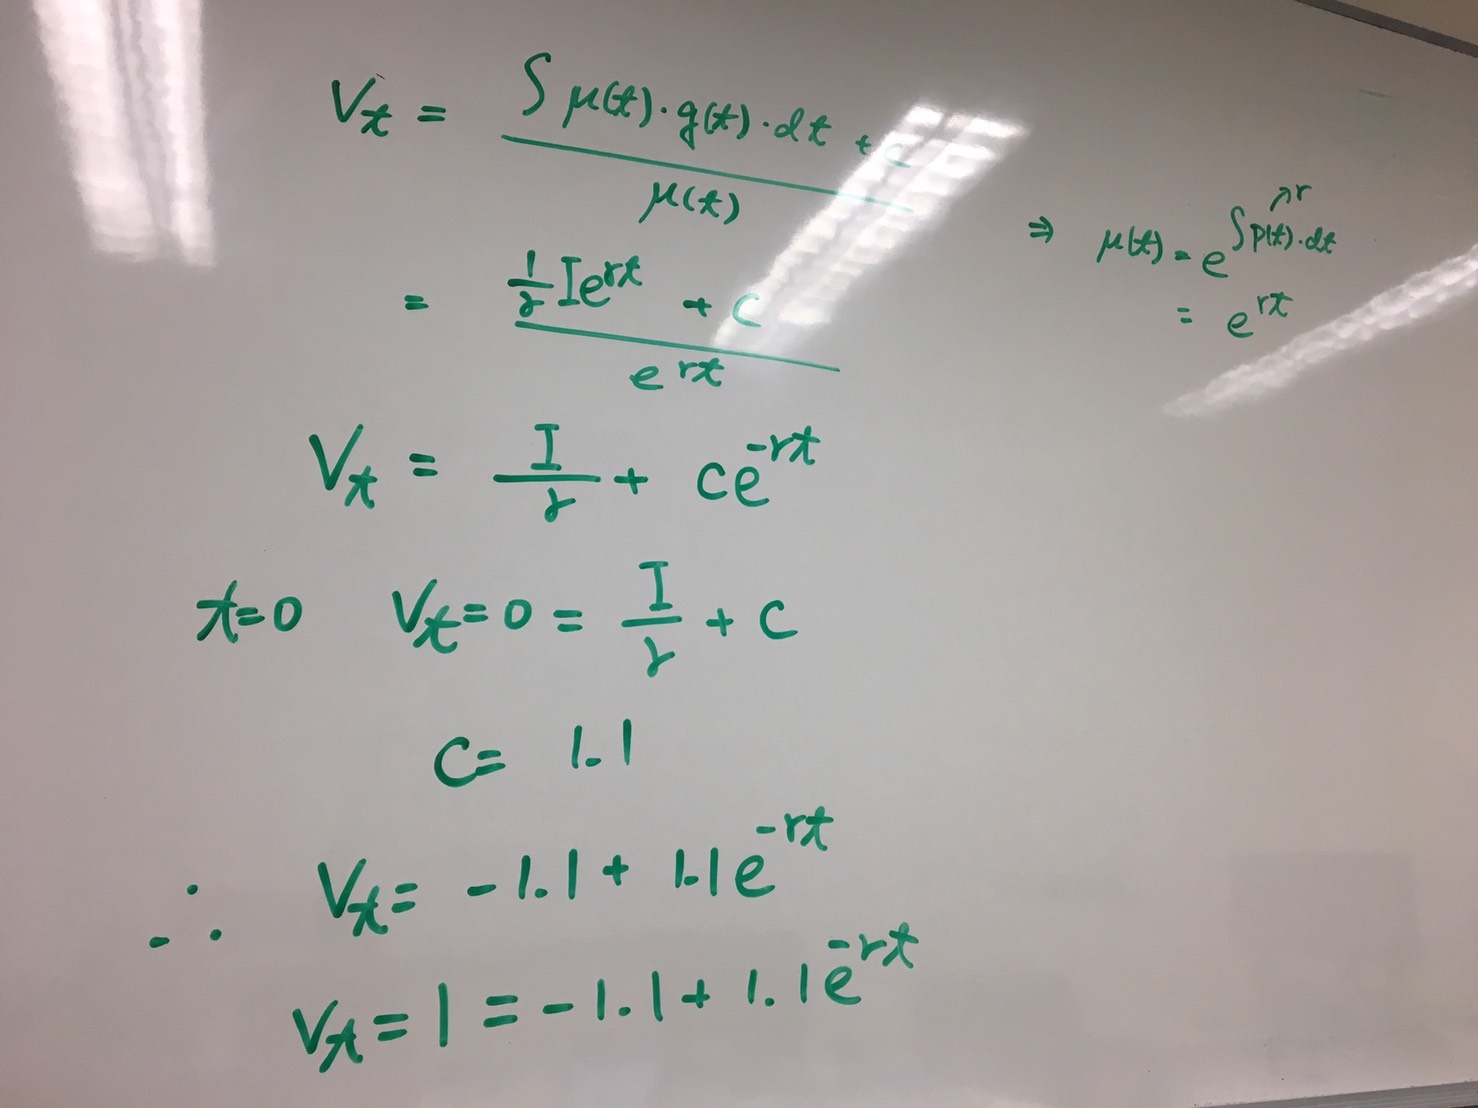 Vt = ∫ μ(t)·g(t)·dt + c / μ(t)
⇒ μ(t) = e^∫p(t)·dt ↗r
= e^rt
= 1/r Ie^rt + c / e^rt
Vt = I/r + ce^-rt
t=0 Vt=0 = I/r + c
c= 1.1
∴ Vt= -1.1 + 1.1e^-rt
Vt=1 = -1.1 + 1.1e^-rt